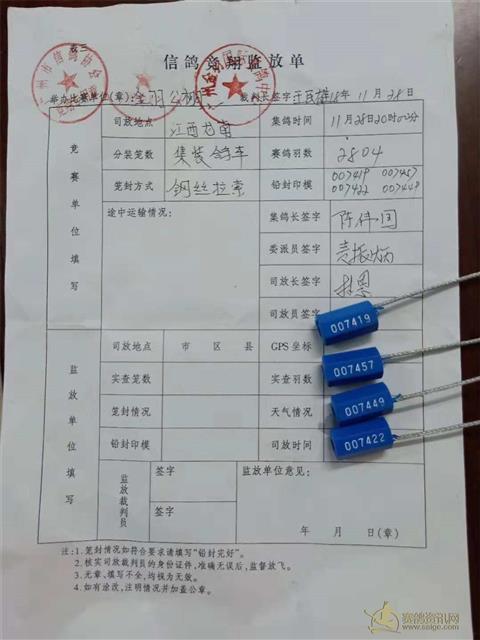 表三
信鸽竞翔监放单
举办比赛单位(章): 裁判长签字 18年 11月 28日
竞赛单位填写
司放地点 江西龙南 集鸽时间 11月28日20时02分
分装笼数 集装鸽车 赛鸽羽数 2804
笼封方式 钢丝拉索 铅封印模 007419 007457
007422 007449
途中运输情况: 集鸽长签字
委派员签字
司放长签字
司放员签字
监放单位填写
司放地点 市 区 县 GPS坐标
实查笼数 实查羽数
笼封情况 天气情况
铅封印模 司放时间
监放裁判员 签字 监放单位意见:
签字
年 月 日(章)
007419
007457
007449
007422
注:1.笼封情况如符合要求请填写"铅封完好"。
2.核实司放裁判员的身份证件,准确无误后,监督放飞。
3.无章、填写不全,均视为无效。
4.如有涂改,注明情况并加盖公章。
赛鸽资讯网
www.saige.com